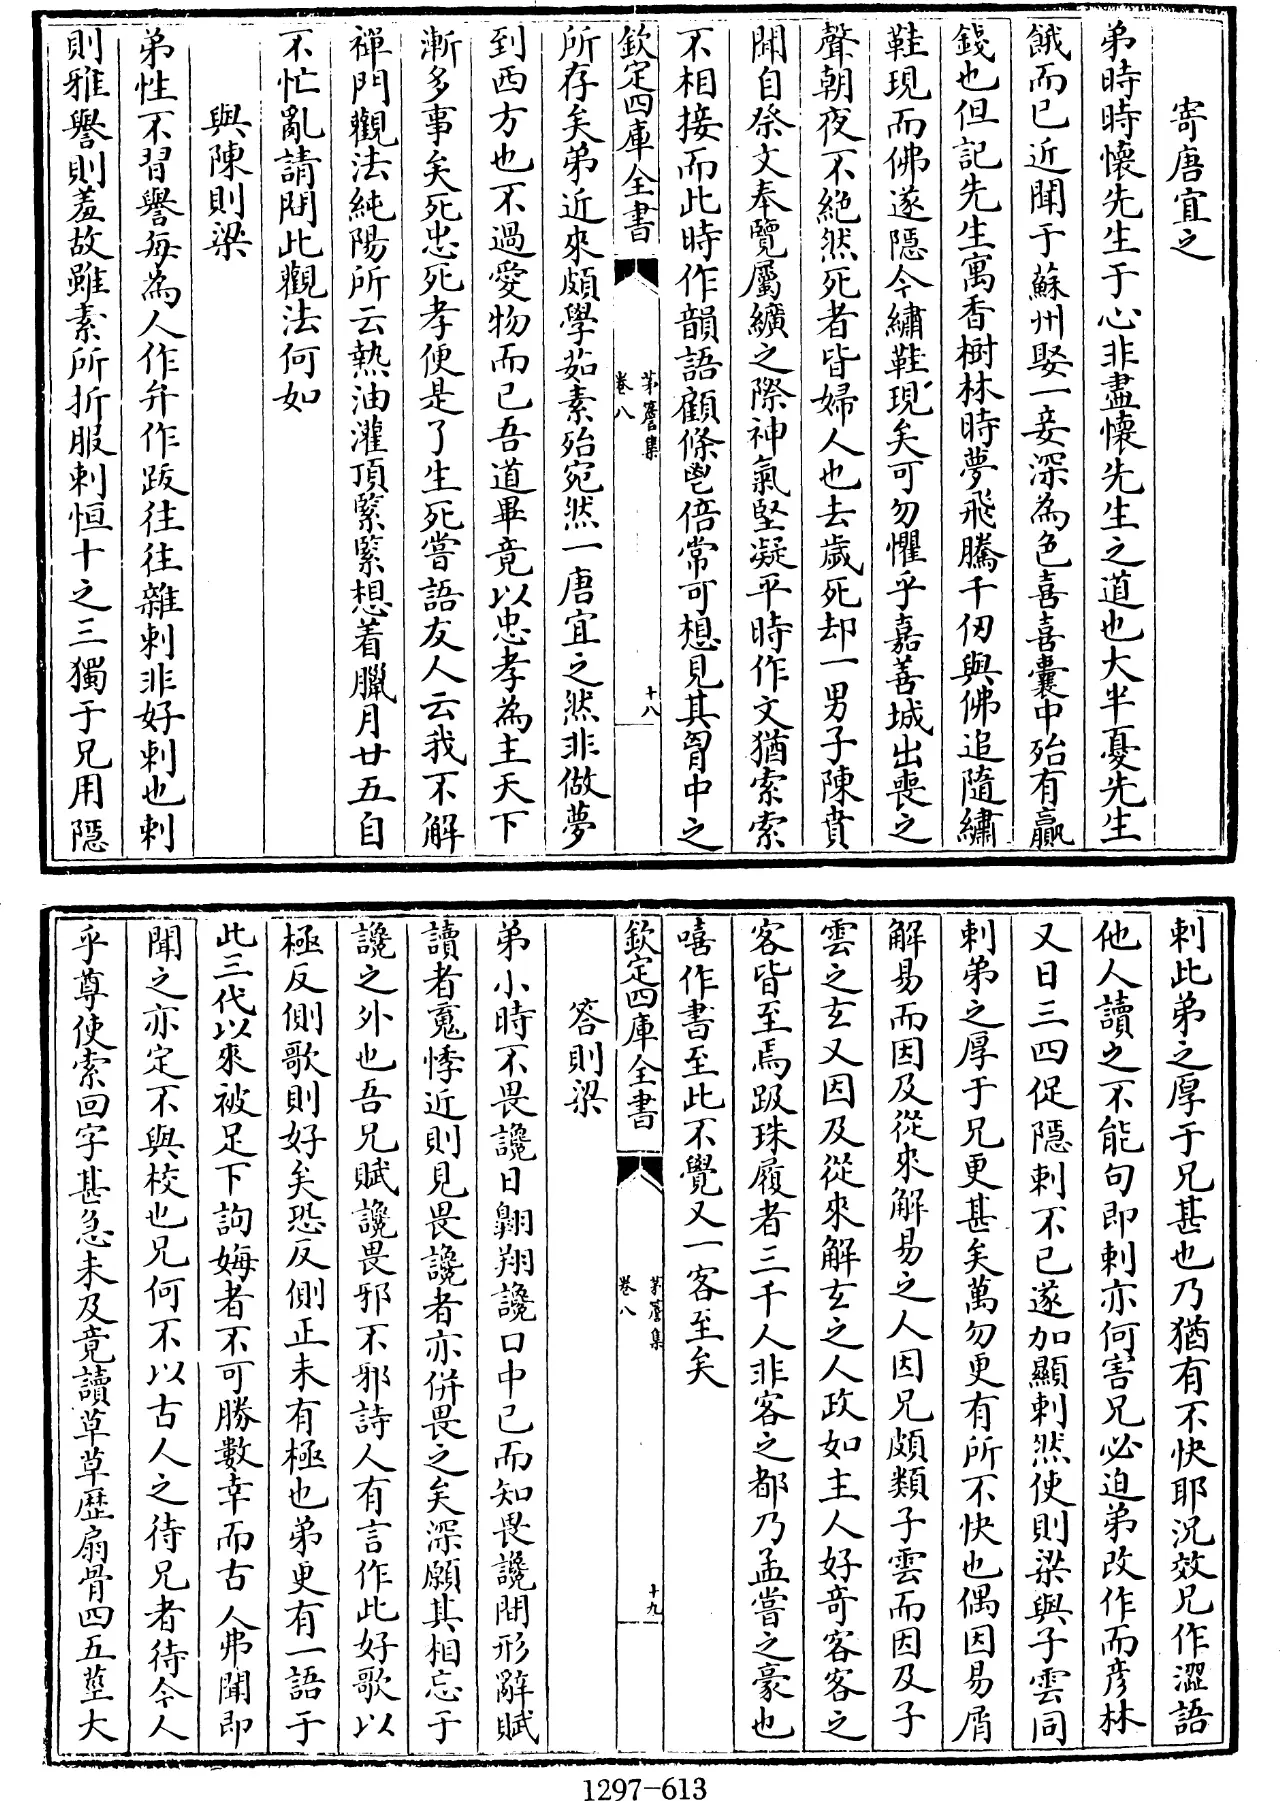 寄唐宜之
弟時時懷先生于心非盡懷先生之道也大半憂先生
餓而已近聞于蘇州娶一妾深為色喜喜囊中殆有贏
錢也但記先生寓香樹林時夢飛騰千仞與佛追隨繡
鞋現而佛遂隱今繡鞋現矣可勿懼乎嘉善城出喪之
聲朝夜不絕然死者皆婦人也去歲死却一男子陳賁
聞自祭文奉覽屬纊之際神氣堅凝平時作文猶索索
不相接而此時作韻語顧條鬯倍常可想見其胷中之
欽定四庫全書
茅簷集
卷八
十八
所存矣弟近來頗學茹素殆宛然一唐宜之然非做夢
到西方也不過愛物而已吾道畢竟以忠孝為主天下
漸多事矣死忠死孝便是了生死嘗語友人云我不解
禪門觀法純陽所云熱油灌頂緊緊想着臘月廿五自
不忙亂請問此觀法何如
與陳則梁
弟性不習譽每為人作弁作跋往往雜刺非好刺也刺
則雅譽則羞故雖素所折服刺恒十之三獨于兄用隱
刺此弟之厚于兄甚也乃猶有不快耶況效兄作澀語
他人讀之不能句即刺亦何害兄必迫弟改作而彥林
又日三四促隱刺不已遂加顯刺然使則梁與子雲同
刺弟之厚于兄更甚矣萬勿更有所不快也偶因易屑
解易而因及從來解易之人因兄頗類子雲而因及子
雲之玄又因及從來解玄之人政如主人好奇客客之
客皆至焉趿珠履者三千人非客之都乃孟嘗之豪也
嘻作書至此不覺又一客至矣
欽定四庫全書
茅簷集
卷八
十九
答則梁
弟小時不畏讒日翺翔讒口中已而知畏讒間形辭賦
讀者䰟悸近則見畏讒者亦併畏之矣深願其相忘于
讒之外也吾兄賦讒畏邪不邪詩人有言作此好歌以
極反側歌則好矣恐反側正未有極也弟更有一語于
此三代以來被足下詢娒者不可勝數幸而古人弗聞即
聞之亦定不與校也兄何不以古人之待兄者待今人
乎尊使索回字甚急未及竟讀草草歷扇骨四五莖大
1297-613